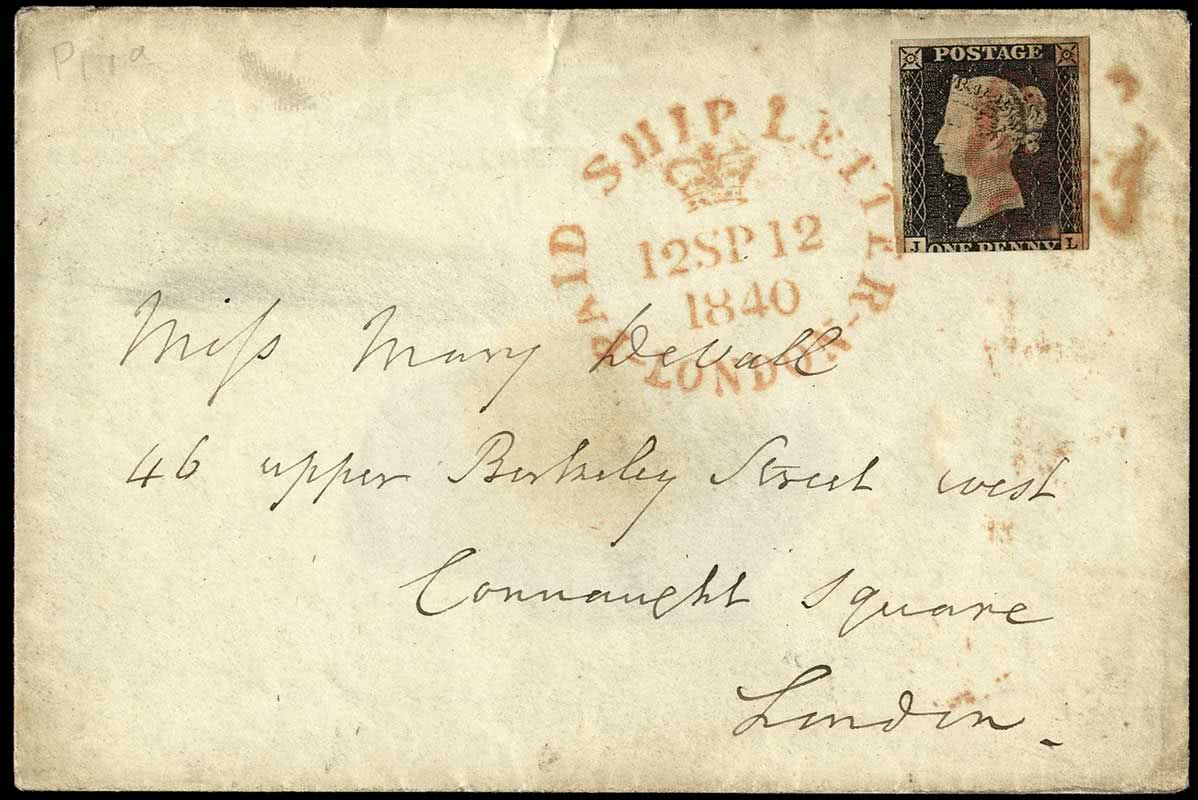 P 1 1 a
POSTAGE
J ONE PENNY L
PAID SHIP LETTER
12SP12
1840
LONDON
Miſs Mary DeVall
46 upper Berkeley Street west
Connaught Square
London